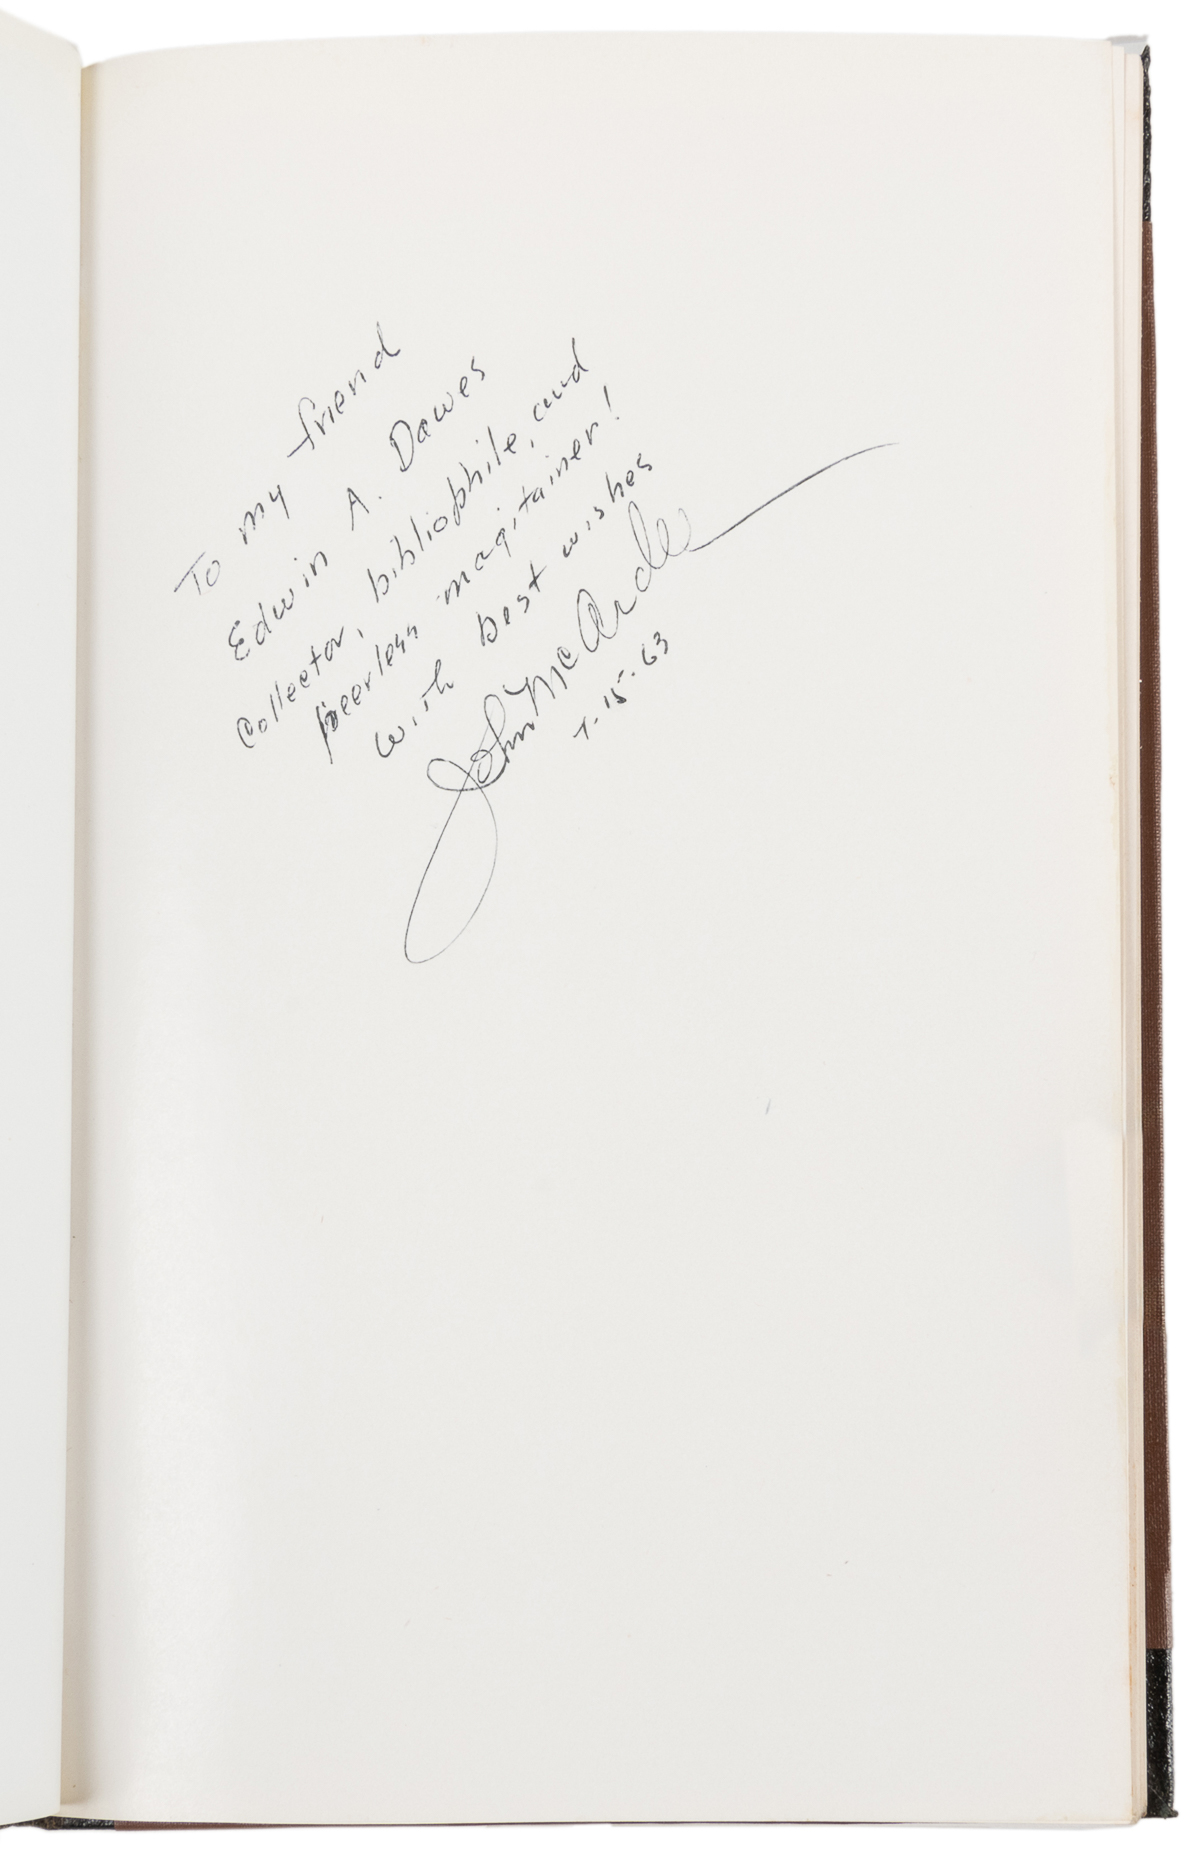 To my friend
Edwin A. Dawes
Collector, bibliophile, and
peerless magitainer!
with best wishes
John McArdle
7-15-63